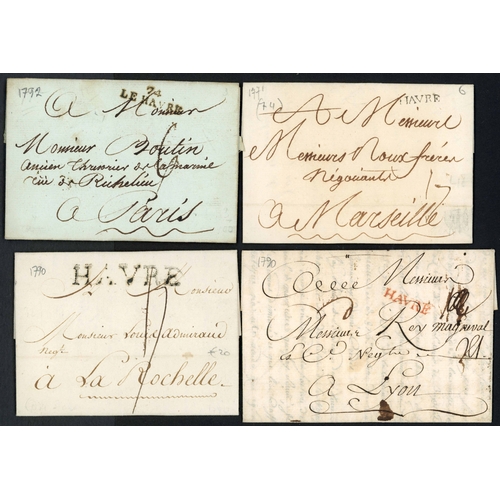 1792
74
LE HAVRE
A Monsieur
Monsieur Boutin
ancien thresorier de la marine
rue de Richelieu
a Paris
6
HAVRE
A Messieurs
Messieurs Roux freres
Negociants
17
a Marseille
1770
HAVRE
A Monsieur
Monsieur Louis Admirauld
Negt
à La Rochelle
€20
1790
A Messieurs
HAVRE
Messieurs Rey
& Ce Negts
A Lyon